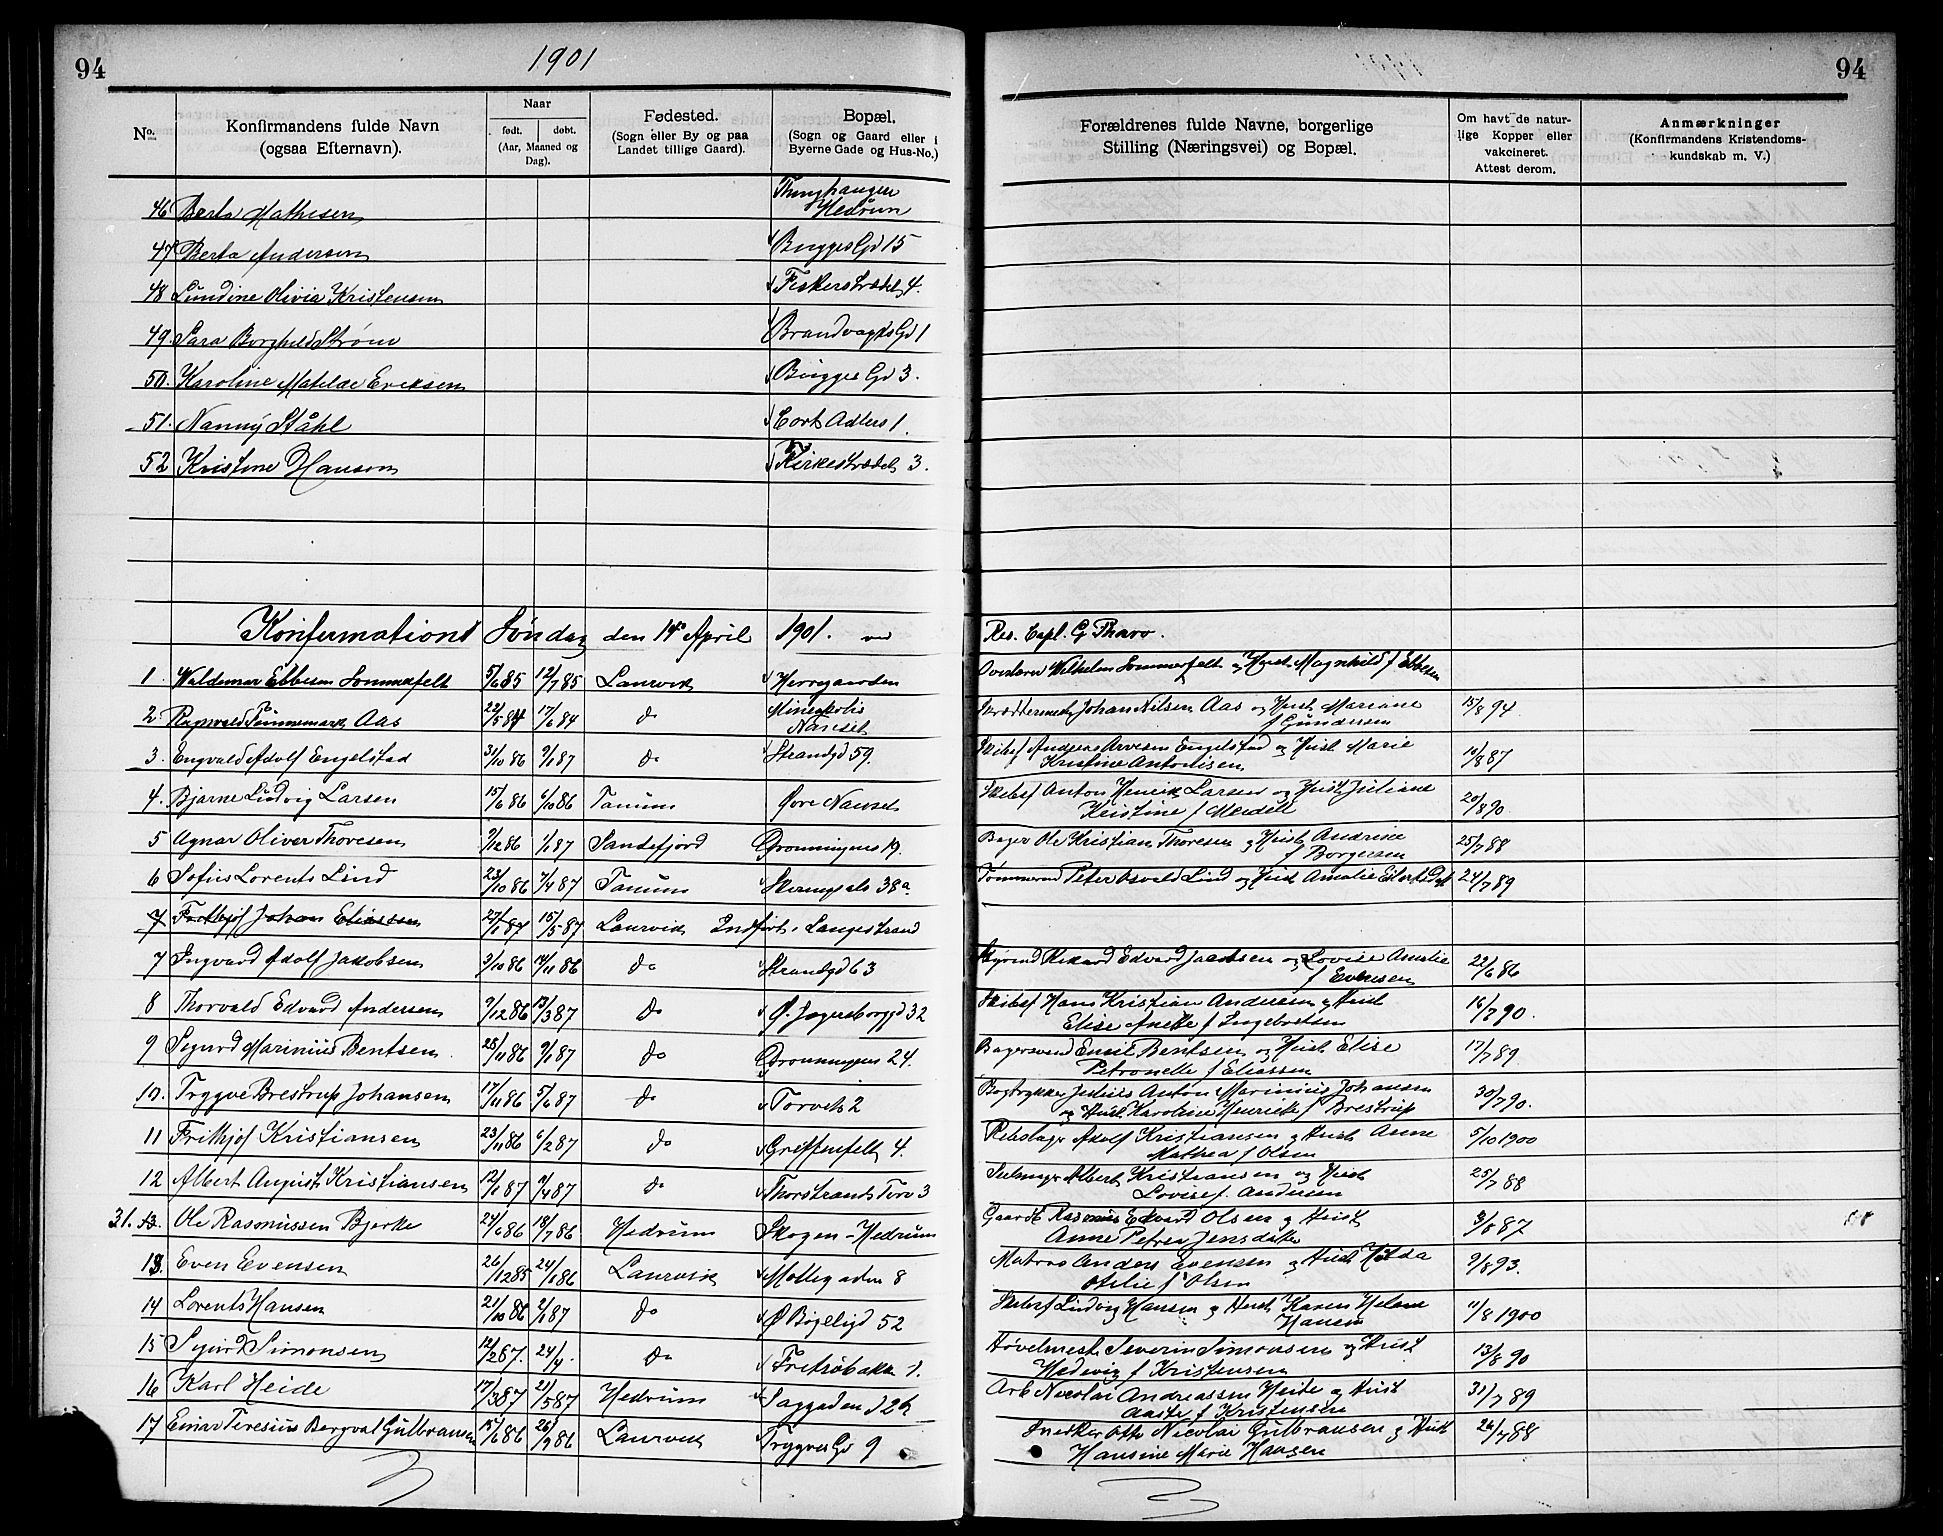 94
1901
94
No. Konfirmandens fulde Navn (ogsaa Efternavn). Naar født. døbt. (Aar, Maaned og Dag). Fødested. (Sogn eller By og paa Landet tillige Gaard). Bopæl. (Sogn og Gaard eller i Byerne Gade og Hus-No.) Forældrenes fulde Navne, borgerlige Stilling (Næringsvei) og Bopæl. Om havt de naturlige Kopper eller vakcineret. Attest derom. Anmærkninger (Konfirmandens Kristendomskundskab m. V.)
46 Berta Mathisen Hedrum
47 Berta Andersen Bugges Gd 15
48 Lundine Olivia Kristensen Fiskerstrædet 4.
49. Sara Borghild Strøm Brandvagts Gd 1
50. Karoline Matilde Eriksen Bugges Gd 3.
51. Nanny Ståhl Cort Adlers 1.
52 Kristine Hanson Kirkestrædet 3.
Konfirmation Søndag den 14de April 1901. ved Res. Capl. G Tharo.
1. Waldemar Ebbesen Sommerfelt 5/6 85 12/7 85 Laurvik Herregaarden
Wilhelm Sommerfelt og Hust Magnhild f Ebbesen
2. Ragnvald Aas 22/5 84 17/6 84 do Nanset
Skræddermester Johan Nilsen Aas og Hust Mariane 15/8 94.
f Gundersen
3. Engvald Adolf Engelstad 31/10 86 9/1 87 do Strandgd 59.
Skibsf Andreas Arvesen Engelstad og Hust Marie
Kristine Antonisen
4. Bjarne Ludvig Larsen 15/6 86 6/10 86 Tanum Øvre Nanset
Skibsf Anton Henrik Larsen og Hust Juliane 20/8 90.
Kristine f
5 Agnar Oliver Thoresen 9/12 86 1/1 87 Sandefjord Dronningens 19.
Bager Ole Kristian Thoresen og Hust Andrine 25/7 88
f Borgersen
6 Sofus Lorents Lind 23/10 86 7/4 87 Tanum 38a
Tømmermd Peter Osvald Lind og Hust Amalie 24/7 89
7 Fritkjof Johan Eliassen 27/1 87 15/5 87 Laurvik Indført i Langestrand
7 Ingvard Adolf Jakobsen 3/10 86 14/11 86 do Strandgd 63
Rikard Edvard Jacobsen og Lovise Amalie 22/6 86
f Evensen
8 Thorvald Edvard Andersen 9/12 86 13/3 87 do Ø. Jegersborggd 32
Skibsf Hans Kristian Andersen og Hust 16/7 90.
Elise Anette f Ingebretsen
9 Sigurd Marinius Bentsen 28/11 86 9/1 87 do Dronningens 24.
Bagersvend Emil Bentsen og Hust Elise 17/7 89.
Petronelle f Eliassen
10. Trygve Brestrup Johansen 17/11 86 5/6 87 do Torvets 2
Bogtrykker Julius Anton Marinius Johansen 30/7 90.
og Hust Karoline Henriette f Brestrup
11 Frithjof Kristiansen 23/11 86 6/2 87 do Griffenfelt 4.
Rebslager Adolf Kristiansen og Hust Anne 5/10 1900
Mathea f Olsen
12 Albert August Kristiansen 12/1 87 9/4 87 do Thorstrands Torv 3
Albert Kristiansen og Hust 25/7 88
Lovise f. Andersen
31. 13. Ole Rasmussen Bjerke 24/6 86 18/7 86 Hedrum Skogen - Hedrum
Gaardb Rasmus Edvard Olsen og Hust 3/8 87
Anne Petrea Jensdatter
13. Even Evensen 26/12 85 24/1 86 Laurvik Møllegaden 8
Matros Anders Evensen og Hust Hilda 9/8 93.
Otilie f Olsen
14 Lorents Hansen 21/10 86 2/1 87 do Ø Bøgeligd 52
Skibsf Ludvig Hansen og Hust Karen Helene 11/8 1900
Hansen
15 Sigurd Simonsen 12/2 87. 24/4. do Fritzøbakken 1.
Høvelmest Severin Simonsen og Hust 13/8 90
Hedevig f Kristensen
16 Karl Heide 17/3 87 21/5 87 Hedrum Saggaden 26
Arb Nicolai Andreassen Heide og Hust 31/7 89
Aaste f Kristensen
17 Einar Teresius Bergval Gulbransen 15/6 86 26/9 86 Laurvik Trygves Gd 9
Snedker Otto Nicolai Gulbransen og Hust 26/7 88
Hansine Marie Hansen